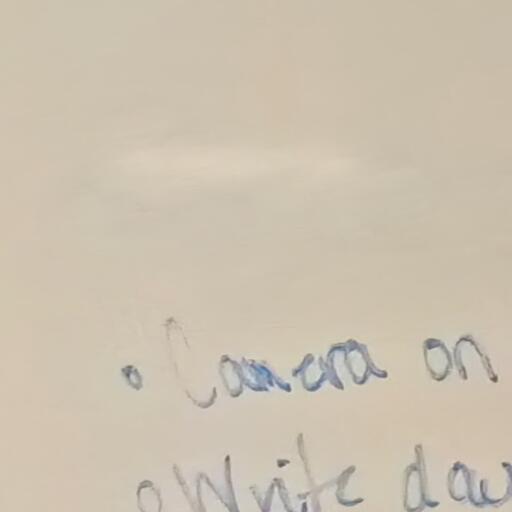 • Camera on
• Write